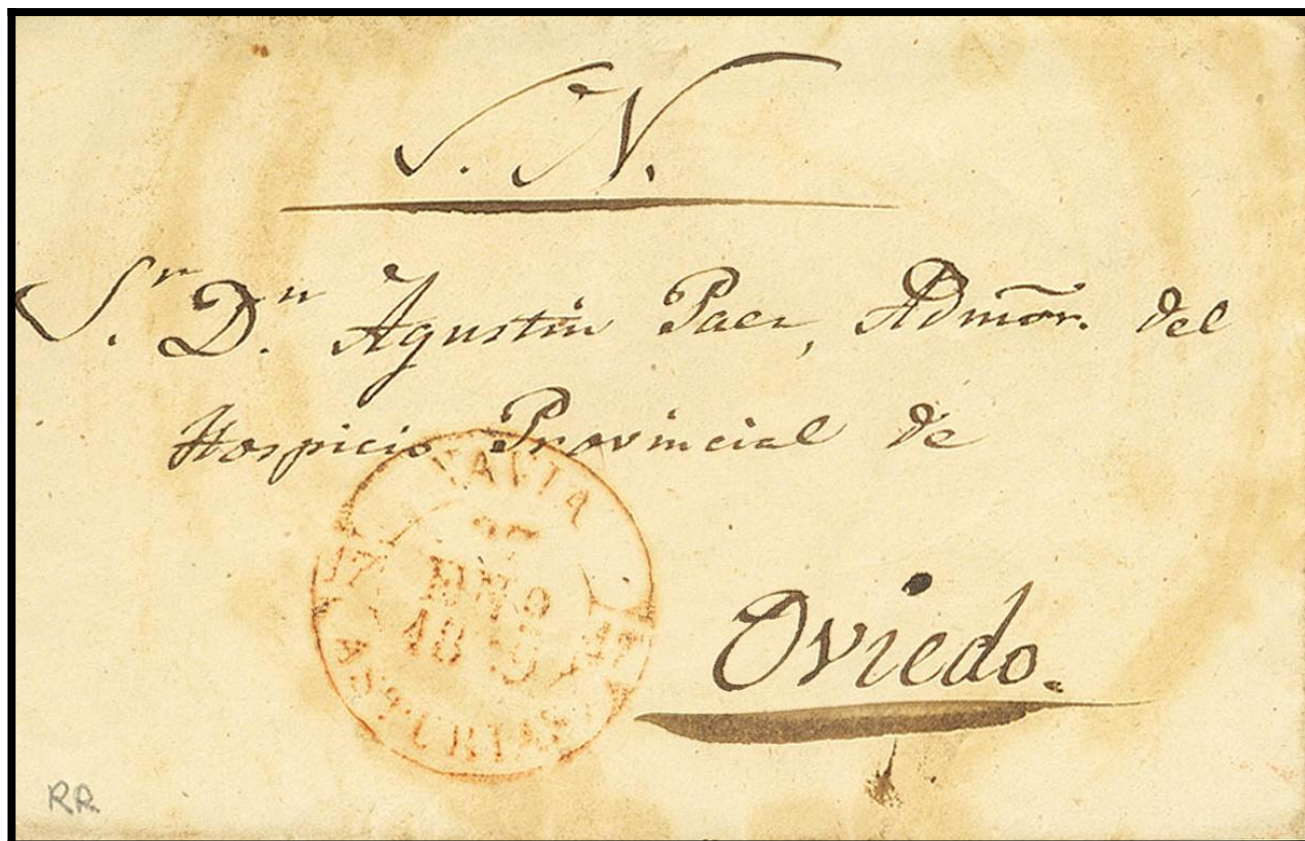 S. N.
S.ʳⁿ D.ⁿ Agustin Paez, Admõr. del
Hospicio Provincial de
Oviedo.
NAVIA
17
ENº
ASTURIAS
RR